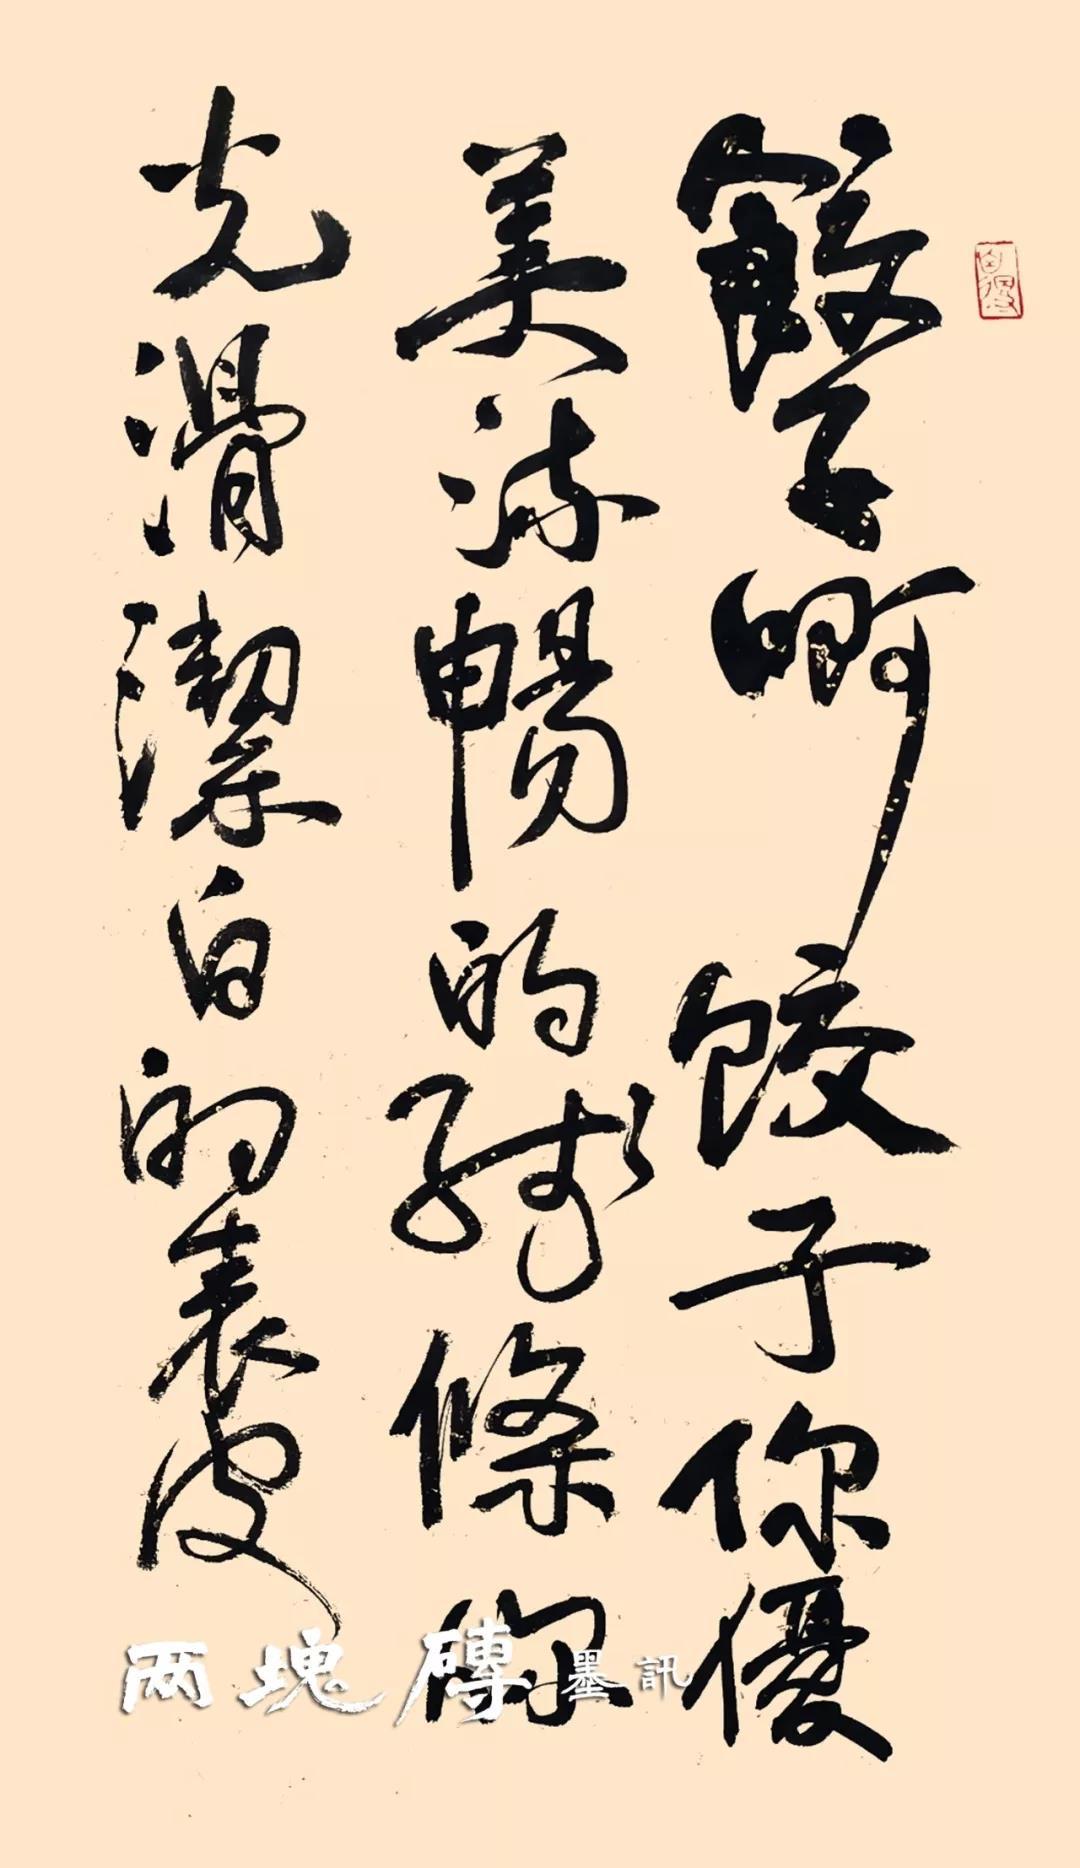 餃子啊餃子你優
美流暢的线條你
光滑潔白的表皮
自得
两塊磚墨訊